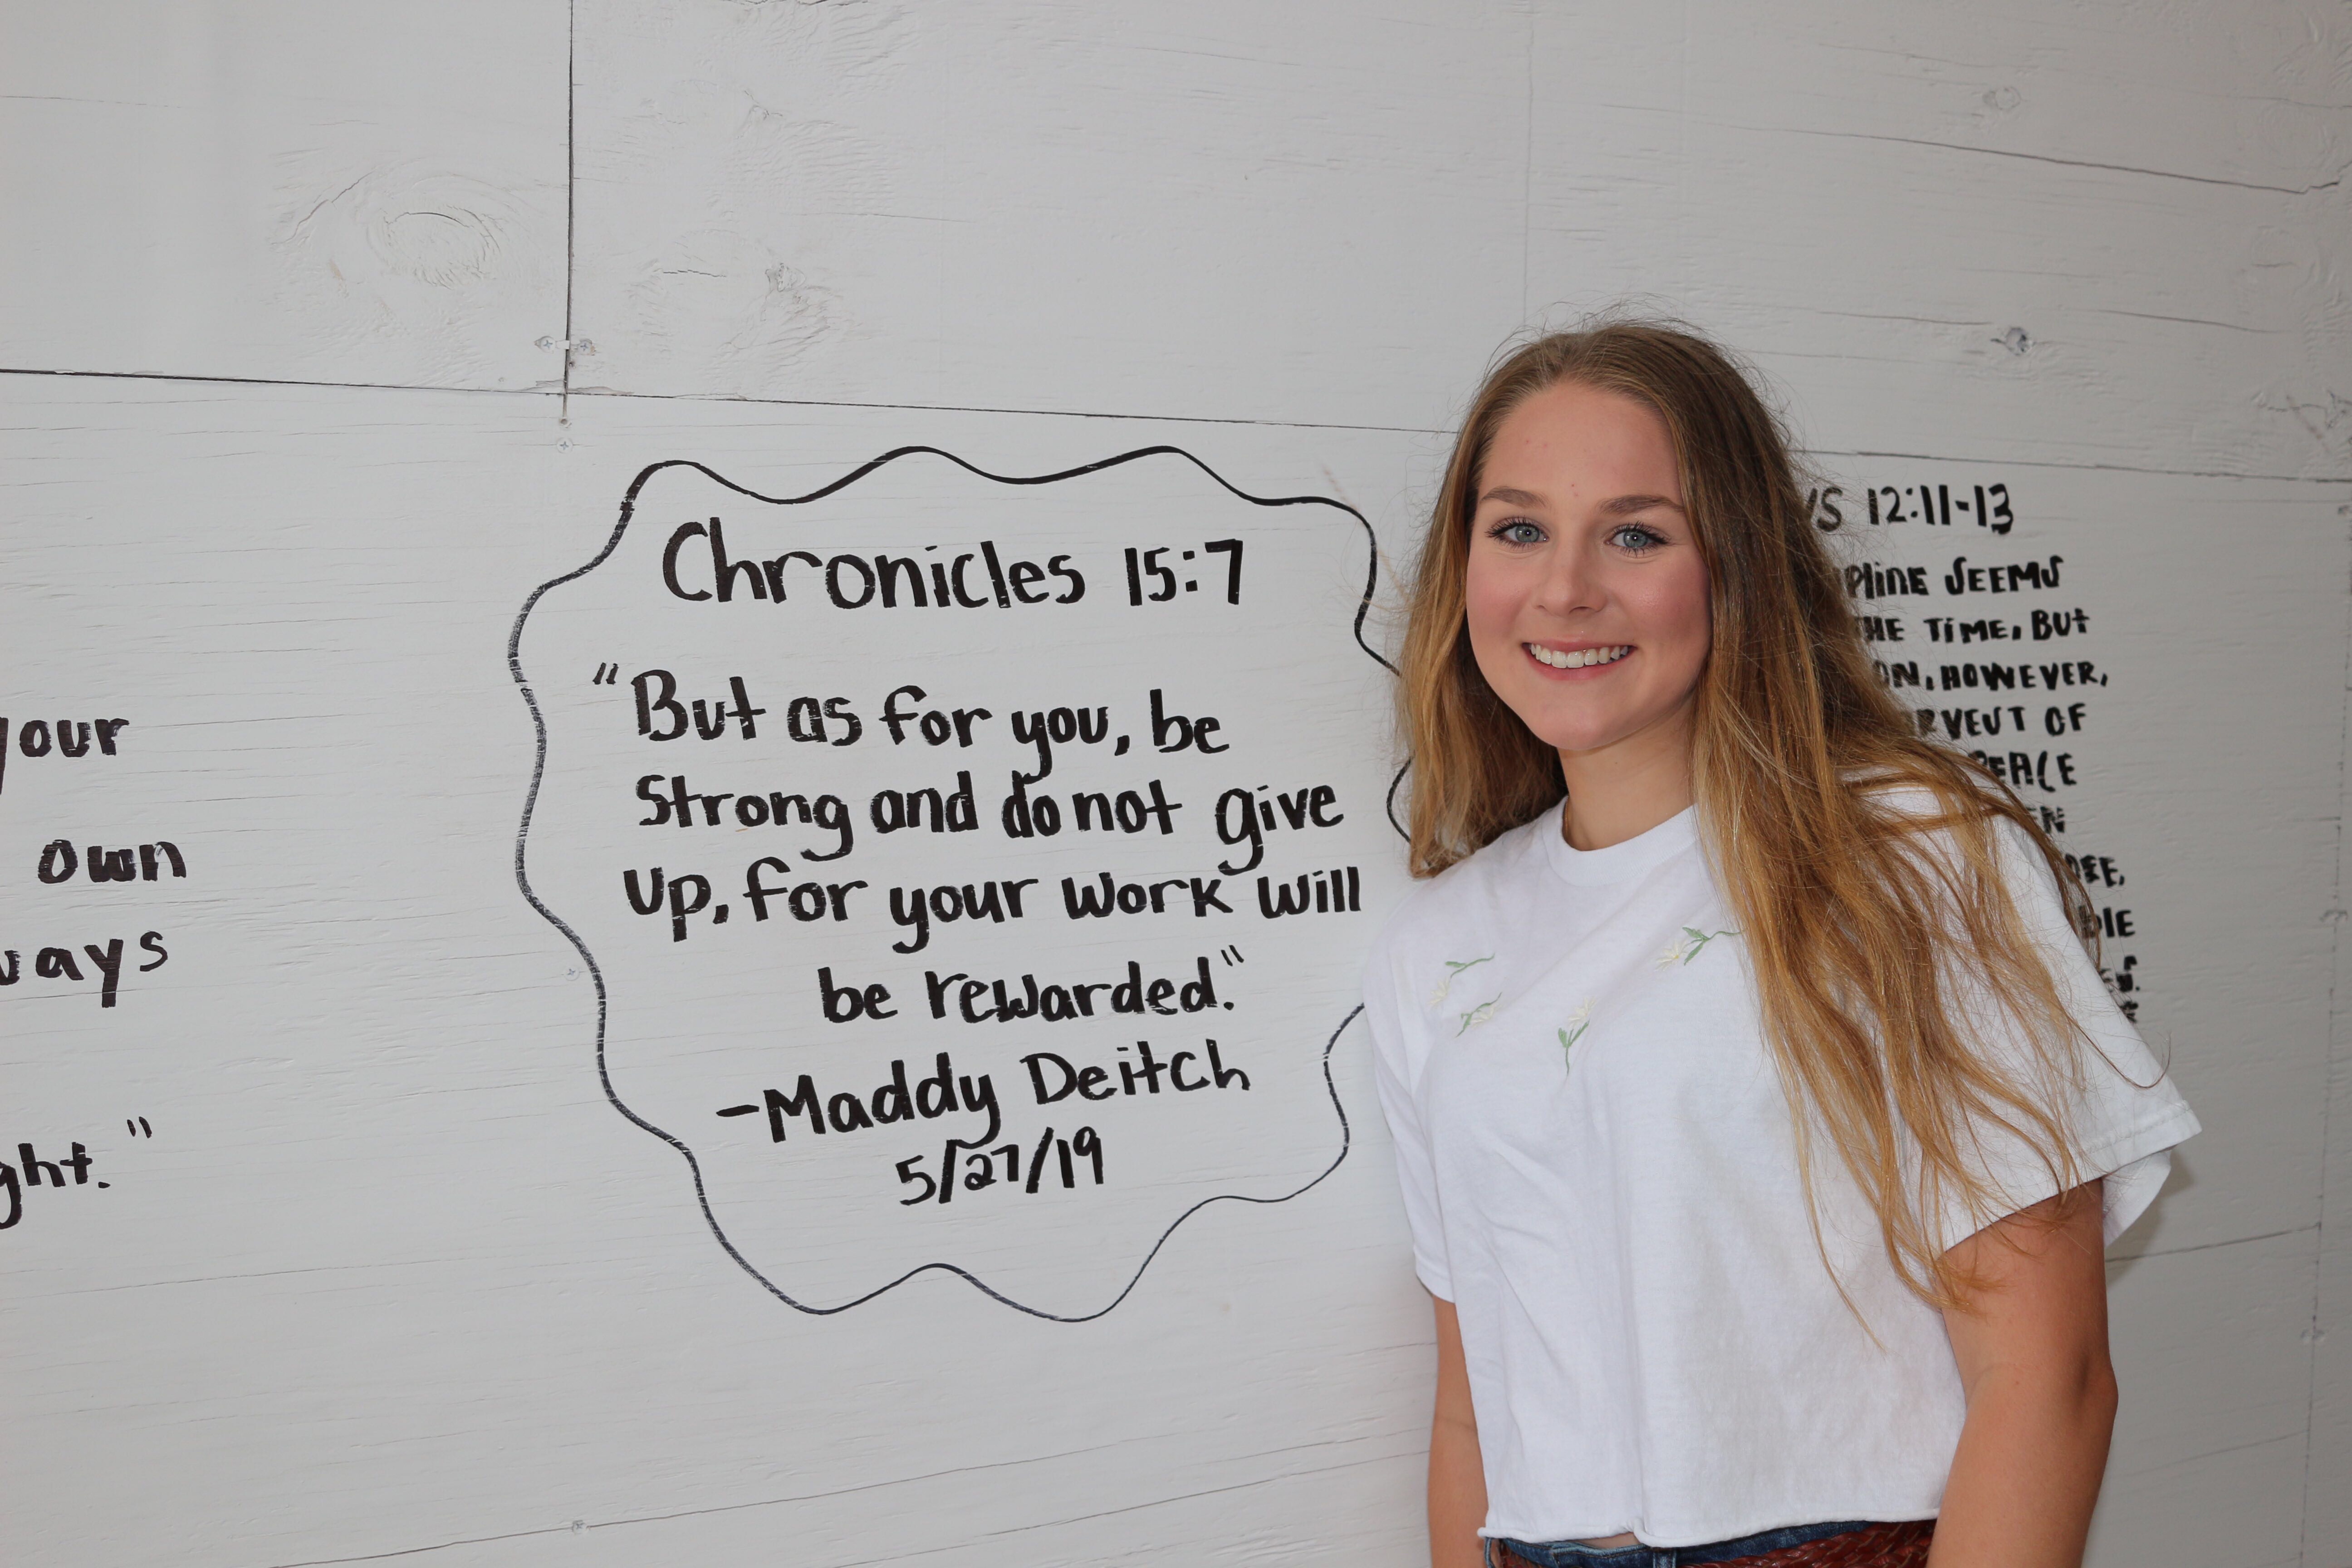 your
own
ght."
Chronicles 15:7
"But as for you, be
Strong and do not give
Up, for your work will
be rewarded."
-Maddy Deitch
5/27/19
12:11-13
SEEMS
TIME, BUT
HOWEVER,
OF
PEACE